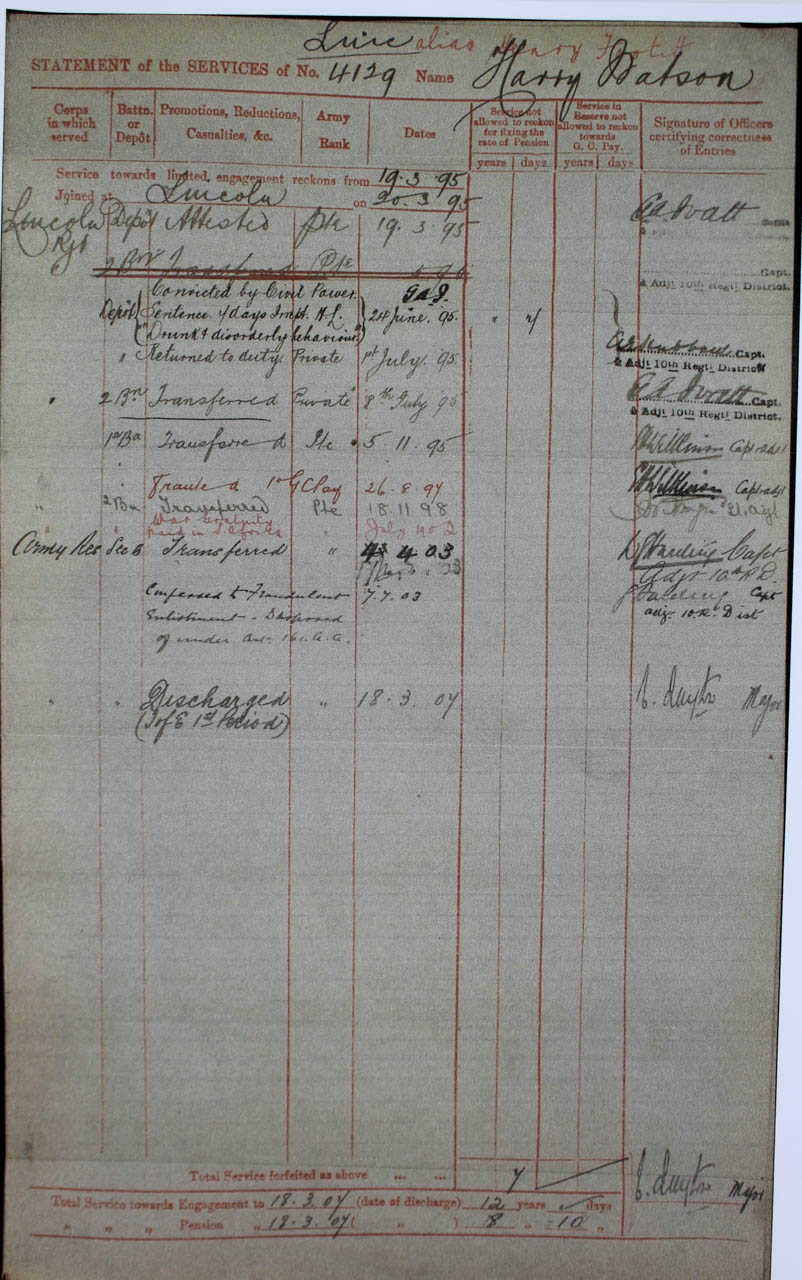 Linc alias Henry
STATEMENT of the SERVICES of No. 4129 Name Harry Batson
Corps in which served
Battn. or Depôt
Promotions, Reductions, Casualties, &c.
Army Rank
Dates
Service not allowed to reckon for fixing the rate of Pension
years days
Service in Reserve not allowed to reckon towards G. C. Pay.
years days
Signature of Officers certifying correctness of Entries
Service towards limited engagement reckons from 19.3.95
Joined at Lincoln on 20.3.95
Lincoln Rgt Depôt Attested Pte 19.3.95
2 Bn Transferred Pte
Capt.
& Adjt 10th Regtl District.
Convicted by Civil Power.
Depôt Sentence 7 days Impt. H.L. 24 June. 95. " 7
("Drunk & disorderly behaviour")
" Returned to duty. Private 1st July. 95
Capt.
& Adjt 10th Regtl District
" 2 Bn Transferred Private 8th July 95
Capt.
& Adjt 10th Regtl District.
1st Bn Transferred Pte 5.11.95 Capt adjt
" Granted 1st G C Pay 26.8.97 Capt adjt
" 2 Bn Transferred Pte 18.11.98
War Gratuity paid in S. Africa " July 1902
Army Res Sec B Transferred " 4 03 Harding Capt
Adjt 10th R.D.
Confessed to Fraudulent 7.7.03 Capt
Enlistment - Disposed adj. 10. R. Dist
of under Art. A.A.
" " Discharged " 18.3.07 Major
(T of E 1st Period)
Total Service forfeited as above ... ... 7
Major
Total Service towards Engagement to 18.3.07 (date of discharge) 12 years days
" " " Pension " 18.3.07 ( " ) 8 " 210 "